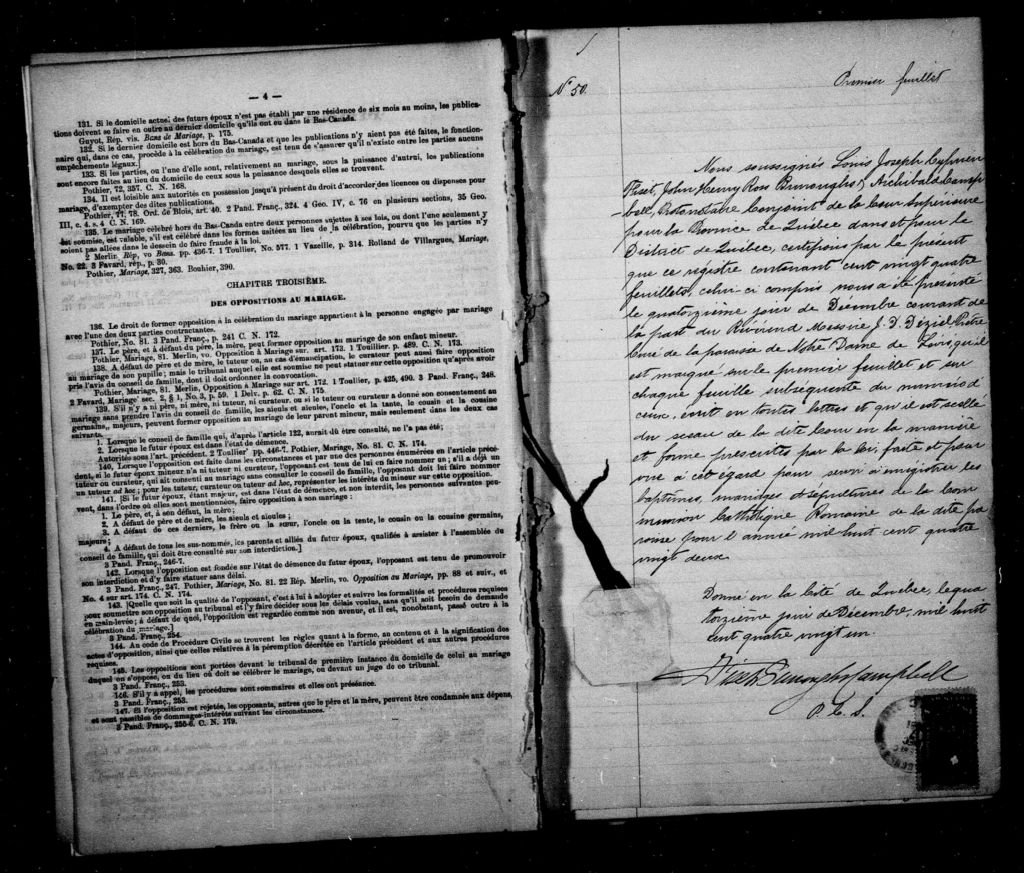 — 4 —
131. Si le domicile actuel des futurs époux n'est pas établi par une résidence de six mois au moins, les publica-
tions doivent se faire en outre au dernier domicile qu'ils ont eu dans le Bas-Canada.
Guyot, Rép. vis. Bans de Mariage, p. 175.
132. Si le dernier domicile est hors du Bas-Canada et que les publications n'y aient pas été faites, le fonction-
naire qui, dans ce cas, procède à la célébration du mariage, est tenu de s'assurer qu'il n'existe entre les parties aucuns
empêchements légaux.]
133. Si les parties, ou l'une d'elle sont, relativement au mariage, sous la puissance d'autrui, les publications
sont encore faites au lieu du domicile de ceux sous la puissance desquels elles se trouvent.
Pothier, 72, 357. C. N. 168.
134. Il est loisible aux autorités en possession jusqu'à présent du droit d'accorder des licences ou dispenses pour
mariage, d'exempter des dites publications.
Pothier, 77, 78. Ord. de Blois, art. 40. 2 Pand. Franç., 324. 4 Geo. IV, c. 76 en plusieurs sections, 35 Geo.
III, c. 4. s. 4 C. N. 169.
135. Le mariage célébré hors du Bas-Canda entre deux personnes sujettes à ses lois, ou dont l'une seulement y
est soumise, est valable, s'il est célébré dans les formes usitées au lieu de la célébration, pourvu que les parties n'y
soient pas allées dans le dessein de faire fraude à la loi.
2 Merlin Rép, vo Bans. pp. 436-7. 1 Toullier, No. 577. 1 Vazeille, p. 314. Rolland de Villargues, Mariage,
No. 22. 3 Favard, rép., p. 30.
Pothier, Mariage, 327, 363. Bouhier, 390.
CHAPITRE TROISIÈME.
DES OPPOSITIONS AU MARIAGE.
136. Le droit de former opposition à la célébration du mariage appartient à la personne engagée par mariage
avec l'une des deux parties contractantes.
Pothier, No. 81. 3 Pand. Franç., p. 241 C. N. 172.
137. Le père, et à défaut du père, la mère, peut former opposition au mariage de son enfant mineur.
Pothier, Mariage, 81. Merlin, vo. Opposition à Mariage sur. art. 172. 1 Touillier, p. 489. C. N. 173.
138. A défaut de père et de mère, le tuteur ou, au cas d'émancipation, le curateur peut aussi faire opposition
au mariage de son pupille; mais le tribunal auquel elle est soumise ne peut statuer sur cette opposition qu'après avoir
pris l'avis du conseil de famille, dont il doit ordonner la convocation.
Pothier, Mariage, 81. Merlin, Opposition à Mariage sur art. 172. 1 Toullier, p. 425, 490. 3 Pand. Franç., 248.
2 Favard, Mariage sec. 2, § 1, No. 3, p. 59. 1 Delv. p. 62. C. N. 175.
139. S'il n'y a ni père, ni mère, ni tuteur, ni curateur, ou si le tuteur ou curateur a donné son consentement au
mariage sans prendre l'avis du conseil de famille, les aïeuls et aïeules, l'oncle et la tante, le cousin et la cousine
germains, majeurs, peuvent former opposition au mariage de leur parent mineur, mais seulement dans les deux cas
suivants.
1. Lorsque le conseil de famille qui, d'après l'article 122, aurait dû être consulté, ne l'a pas été;
2. Lorsque le futur époux est dans l'état de démence.
Autorités sous l'art. précédent. 2 Toullier' pp. 446-7. Pothier, Mariage, No. 81. C. N. 174.
140. Lorsque l'opposition est faite dans les circonstances et par une des personnes énumérées en l'article précé-
dent, si le futur époux mineur n'a ni tuteur ni curateur, l'opposant est tenu de lui en faire nommer un; s'il a déjà un
tuteur ou curateur, qui ait consenti au mariage sans consulter le conseil de famille, l'opposant doit lui faire nommer
un tuteur ad hoc; pour les tuteur, curateur ou tuteur ad hoc, représenter les intérêts du mineur sur cette opposition.
141. [Si le futur époux, étant majeur, est dans l'état de démence, et non interdit, les personnes suivantes peu-
vent, dans l'ordre où elles sont mentionnées, faire opposition à son mariage:
1. Le père, et, à son défaut, la mère;
2. A défaut de père et de mère, les aïeuls et aïeules;
3. A défaut de ces derniers, le frère ou la sœur, l'oncle ou la tante, le cousin ou la cousine germains,
majeurs;
4. A défaut de tous les sus-nommés, les parents et alliés du futur époux, qualifiés à assister à l'assemblée du
conseil de famille, qui doit être consulté sur son interdiction.]
3 Pand. Franç., 246-7.
142. Lorsque l'opposition est fondée sur l'état de démence du futur époux, l'opposant est tenu de promouvoir
son interdiction et d'y faire statuer sans délai.
3 Pand. Franç., 247. Pothier, Mariage, No. 81. 22 Rép. Merlin, vo. Opposition au Mariage, pp. 88 et suiv., et
No. 4 sur art. 174. C. N. 174.
143. [Quelle que soit la qualité de l'opposant, c'est à lui à adopter et suivre les formalités et procédures requises
pour soumettre son opposition au tribunal et l'y faire décider sous les délais voulus, sans qu'il soit besoin de demande
en main-levée; à défaut de quoi, l'opposition est regardée comme non avenue, et il est, nonobstant, passé outre à la
célébration du mariage.]
3 Pand. Franç., 254.
144. Au code de Procédure Civile se trouvent les règles quant à la forme, au contenu et à la signification des
actes d'opposition, ainsi que celles relatives à la péremption décrétée en l'article précédent et aux autres procédures
requises.
145. Les oppositions sont portées devant le tribunal de première instance du domicile de celui au mariage
duquel on s'oppose, ou du lieu où doit se célébrer le mariage, ou devant un juge de ce tribunal.
3 Pand. Franç., 253.
146. S'il y a appel, les procédures sont sommaires et elles ont préséance.
3 Pand. Franç., 253.
147. Si l'opposition est rejetée, les opposants, autres que le père et la mère, peuvent être condamnés aux dépens,
et sont passibles de dommages-intérêts suivant les circonstances.
3 Pand. Franç., 255-6. C. N. 179.
No 50.
Premier feuillet
Nous soussignés Louis Joseph Cyprien
Fiset, John Henry Ross Burroughs & Archibald Camp-
-bell, Protonotaire Conjoint de la Cour Supérieure
pour la Province de Québec dans et pour le
District de Québec, certifions par le présent
que ce régistre contenant cent vingt quatre
feuillets, celui-ci compris nous a été présenté
le quatorzième jour de Décembre courant de
la part du Révérend Messire J. D. Déziel Prêtre
Curé de la paroisse de Notre Dame de Lévis, qu'il
est marqué sur le premier feuillet et sur
chaque feuille subséquente du numéro d
ceux, écrit en toutes lettres et qu'il est scellé
du sceau de la dite Cour en la manière
et forme prescrites par la loi, faite et pour
vue à cet égard pour servir à enregistrer les
baptêmes, mariages et sépultures de la Com
munion Catholique Romaine de la dite pa
roisse pour l'année mil huit cent quatre
vingt deux
Donné en la Cité de Québec, le qua
torzième jour de Décembre, mil huit
Cent quatre vingt un.
Fiset Burroughs Campbell
P. C. S.